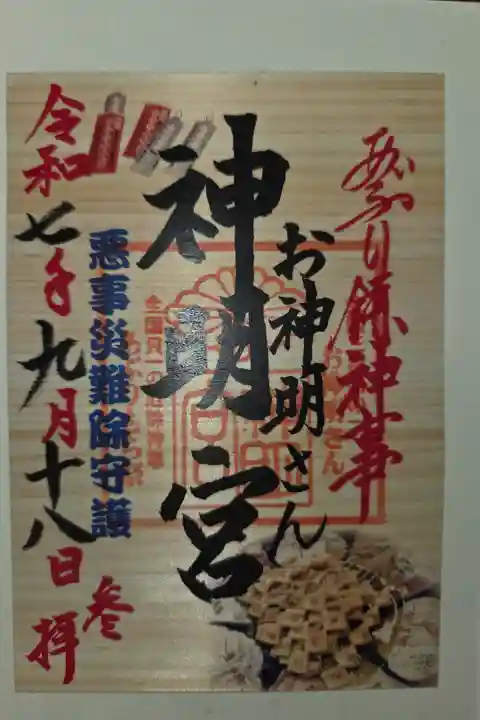 祭り限神事
お神明さん
神明宮
悪事災難除守護
令和七年九月十八日
参拝